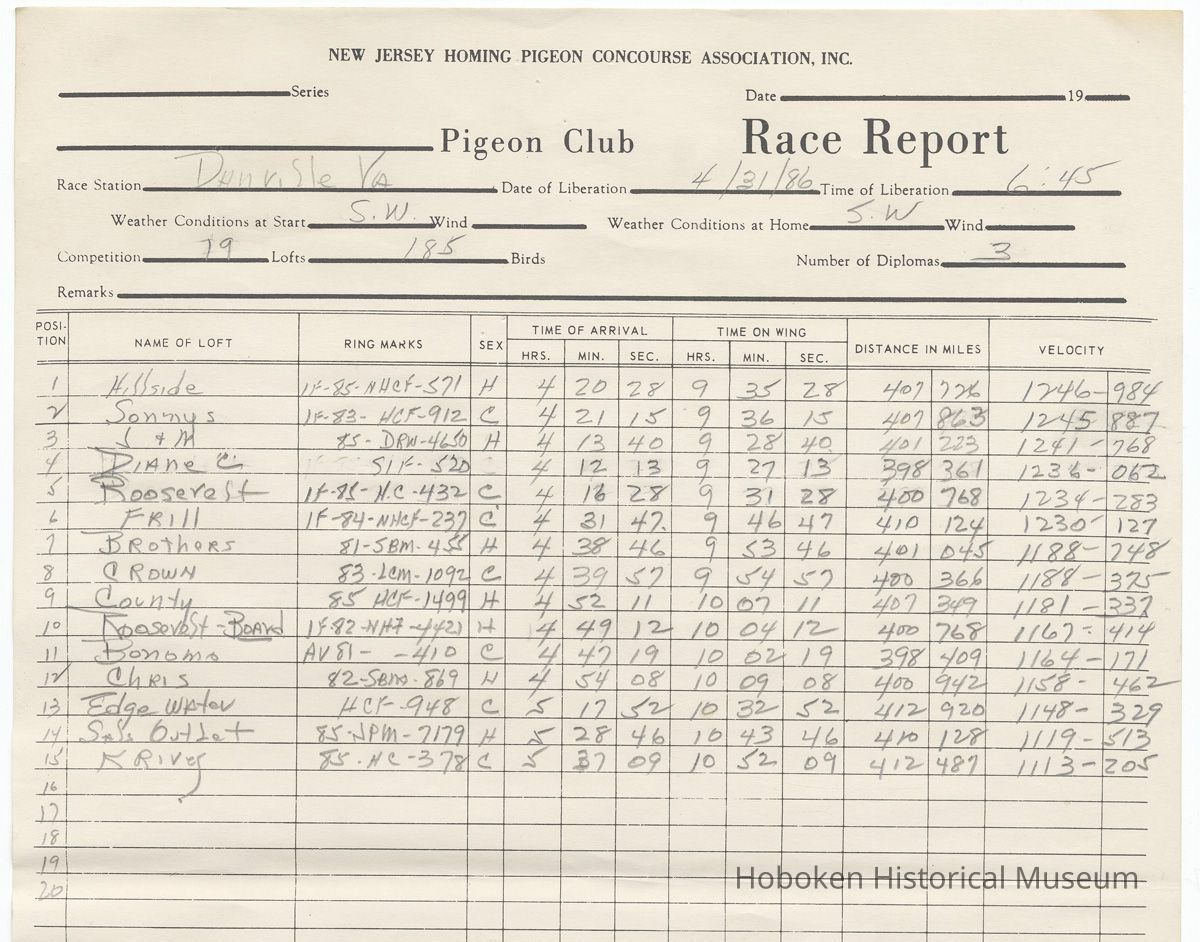 NEW JERSEY HOMING PIGEON CONCOURSE ASSOCIATION, INC.
Series Date 19
Pigeon Club Race Report
Race Station Danville VA Date of Liberation 4/31/86 Time of Liberation 6:45
Weather Conditions at Start S.W. Wind Weather Conditions at Home S.W Wind
Competition 19 Lofts 185 Birds Number of Diplomas 3
Remarks
POSITION NAME OF LOFT RING MARKS SEX TIME OF ARRIVAL TIME ON WING DISTANCE IN MILES VELOCITY
HRS. MIN. SEC. HRS. MIN. SEC.
1 Hillside IF-85-NHCF-571 H 4 20 28 9 35 28 407 726 1246-984
2 Sonnys IF-83-HCF-912 C 4 21 15 9 36 15 407 863 1245 887
3 J & M 85-DRW-4650 H 4 13 40 9 28 40 401 223 1241-768
4 Diane C SIF-520 4 12 13 9 27 13 398 361 1236-062
5 Roosevelt IF-85-H.C-432 C 4 16 28 9 31 28 400 768 1234-283
6 FRill IF-84-NHCF-237 C 4 31 47 9 46 47 410 124 1230-127
7 BRotheRs 81-SBM-455 H 4 38 46 9 53 46 401 045 1188-748
8 CROWN 83-LCM-1092 C 4 39 57 9 54 57 400 366 1188-375
9 County 85 HCF-1499 H 4 52 11 10 07 11 407 349 1181-337
10 Roosevelt-Board IF-82-NH7-4421 H 4 49 12 10 04 12 400 768 1167-414
11 Bonomo AV81--410 C 4 47 19 10 02 19 398 409 1164-171
12 ChRis 82-SBM-869 H 4 54 08 10 09 08 400 942 1158-462
13 Edge Water HCF-948 C 5 17 52 10 32 52 412 920 1148-329
14 Sals Outlet 85-JPM-7179 H 5 28 46 10 43 46 410 128 1119-513
15 K River 85-HC-378 C 5 37 09 10 52 09 412 487 1113-205
16
17
18
19
20
Hoboken Historical Museum